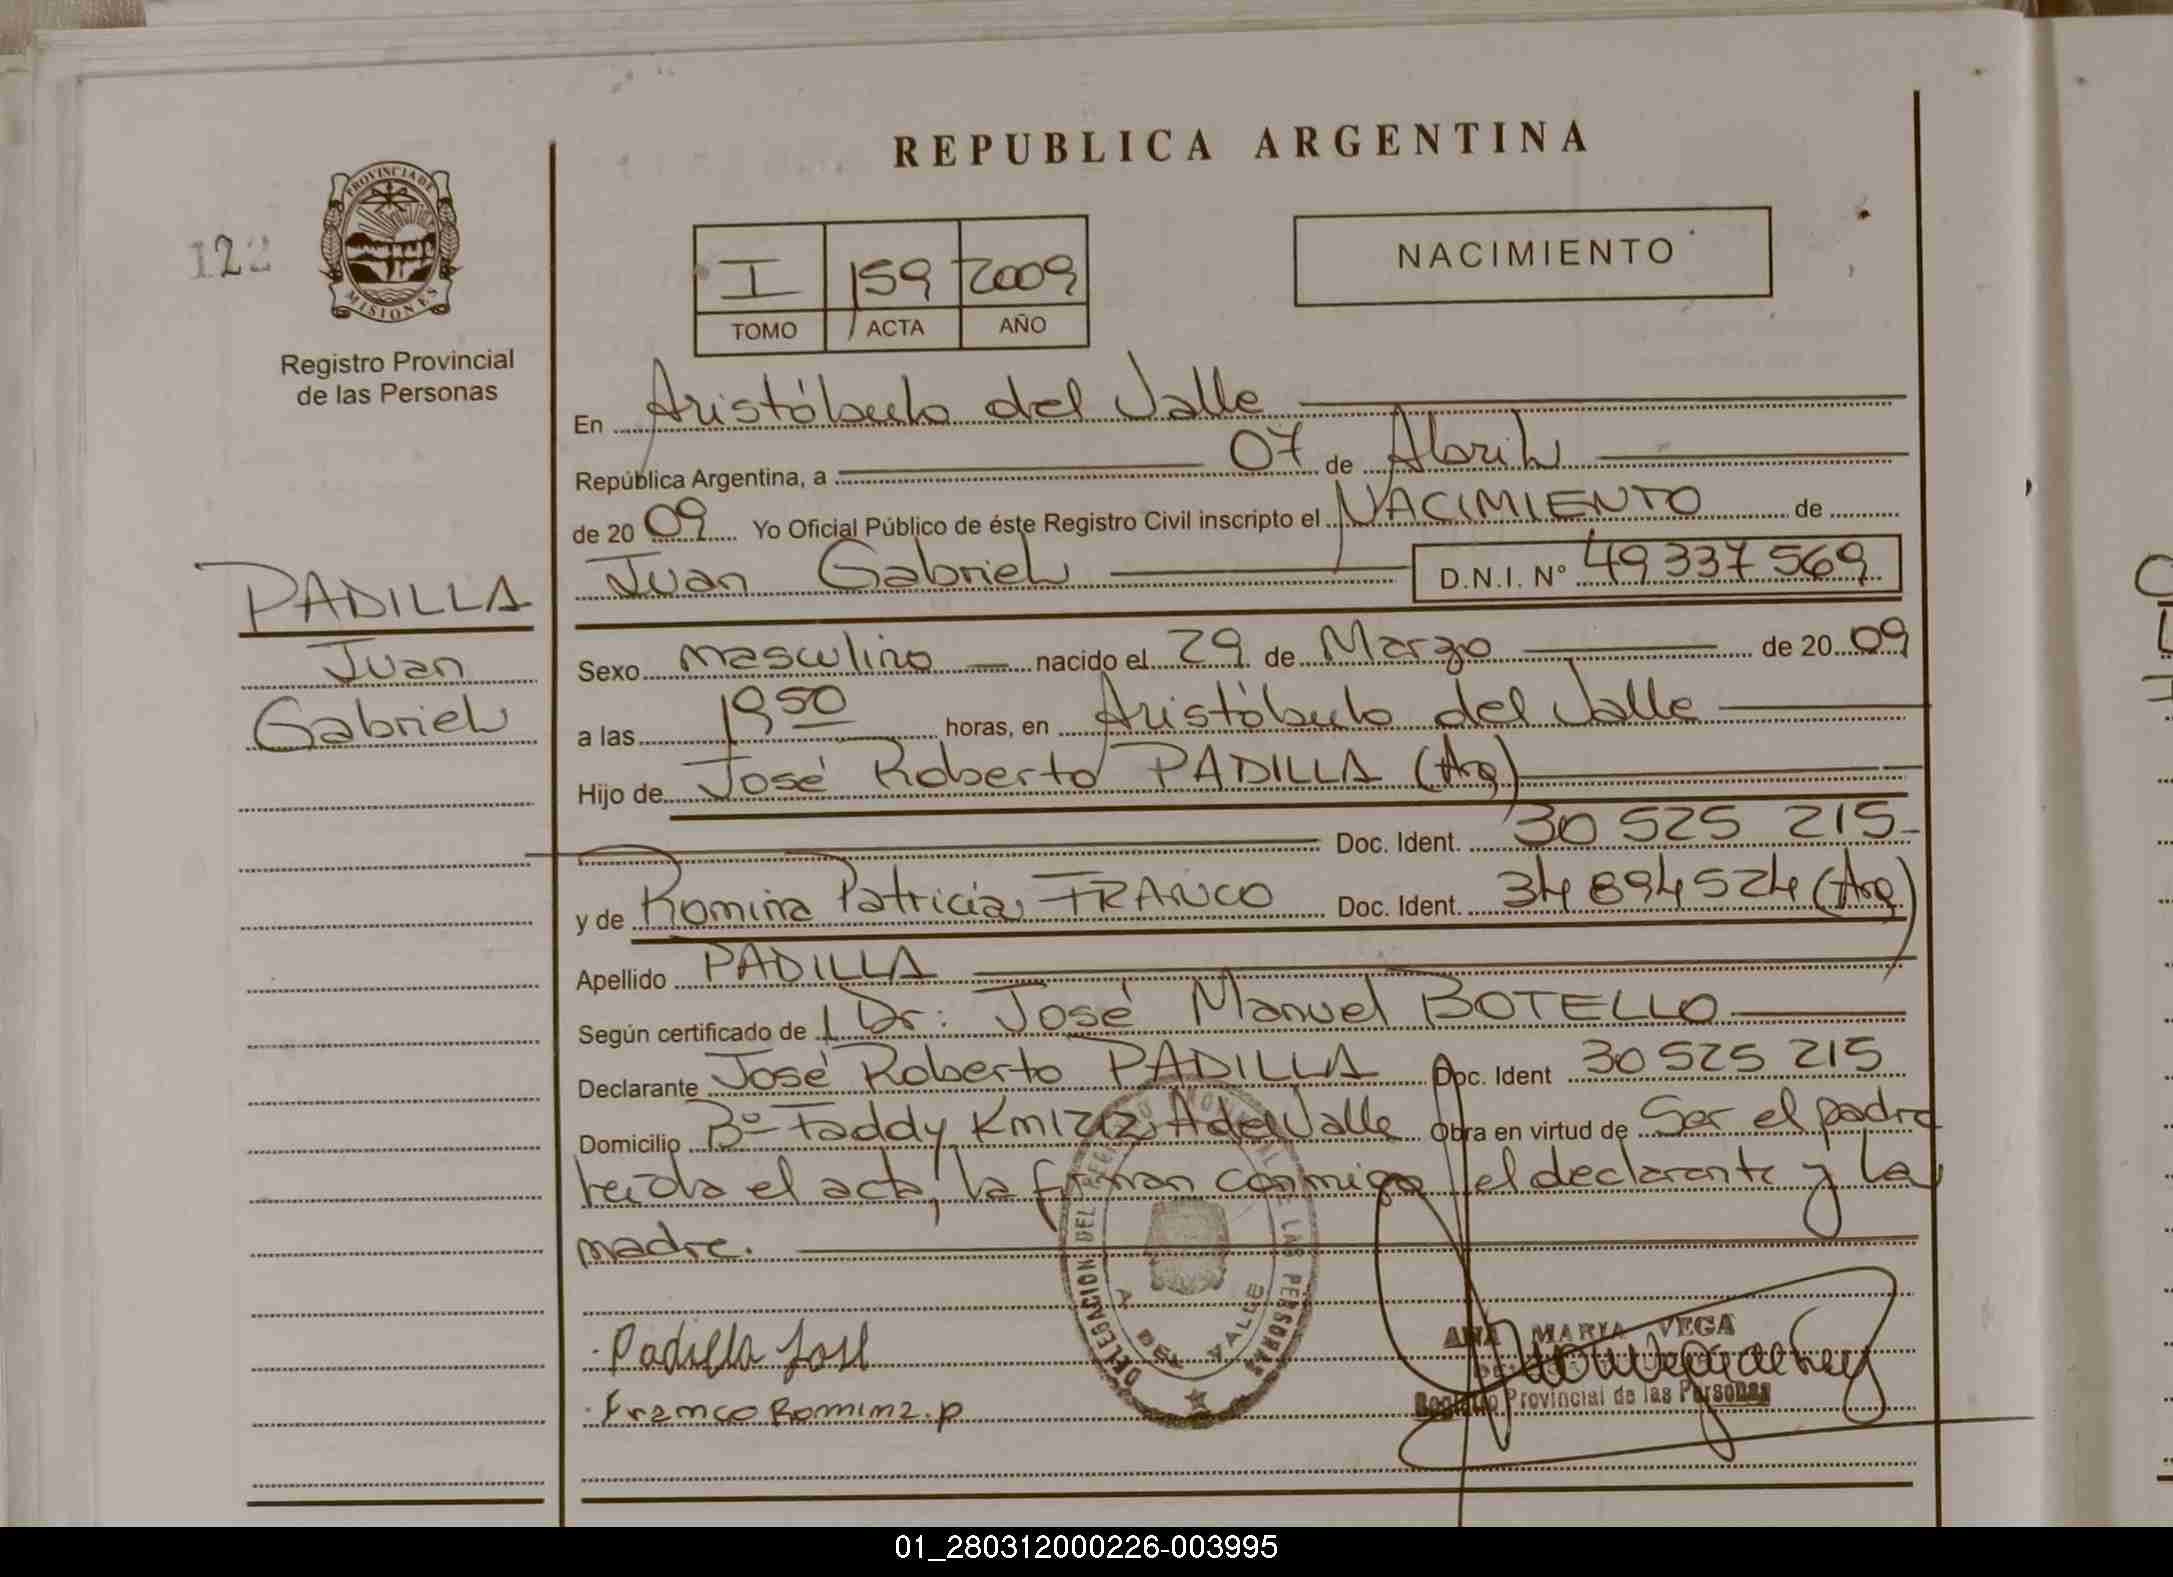 REPUBLICA ARGENTINA
PROVINCIA DE MISIONES
122
Registro Provincial
de las Personas
I 159 2009
TOMO ACTA AÑO
NACIMIENTO
En Aristóbulo del Valle
República Argentina, a 07 de Abril
de 20 09 Yo Oficial Público de éste Registro Civil inscripto el NACIMIENTO de
Juan Gabriel D.N.I. Nº 49 337 569
PADILLA
Juan
Gabriel
Sexo masculino nacido el 29 de Marzo de 20 09
a las 19 50 horas, en Aristóbulo del Valle
Hijo de José Roberto PADILLA (Arg)
Doc. Ident. 30 525 215
y de Romina Patricia FRANCO Doc. Ident. 34 894 524 (Arg)
Apellido PADILLA
Según certificado de Dr: José Manuel BOTELLO
Declarante José Roberto PADILLA Doc. Ident 30 525 215
Domicilio Bº Faddy Km 1212 A del Valle Obra en virtud de Ser el padre
leída el acta, la firman conmigo el declarante y la
madre.
DELEGACION DEL REGISTRO PROVINCIAL DE LAS PERSONAS
A DEL VALLE
Padilla José
Franco Romina. p
ANA MARIA VEGA
Registro Provincial de las Personas
01_280312000226-003995